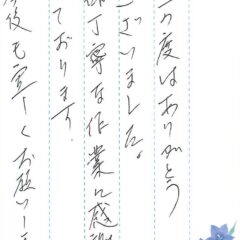 の度はありがとう
ざいました。
丁寧な作業に感謝
ております。
後も宜しくお願いし